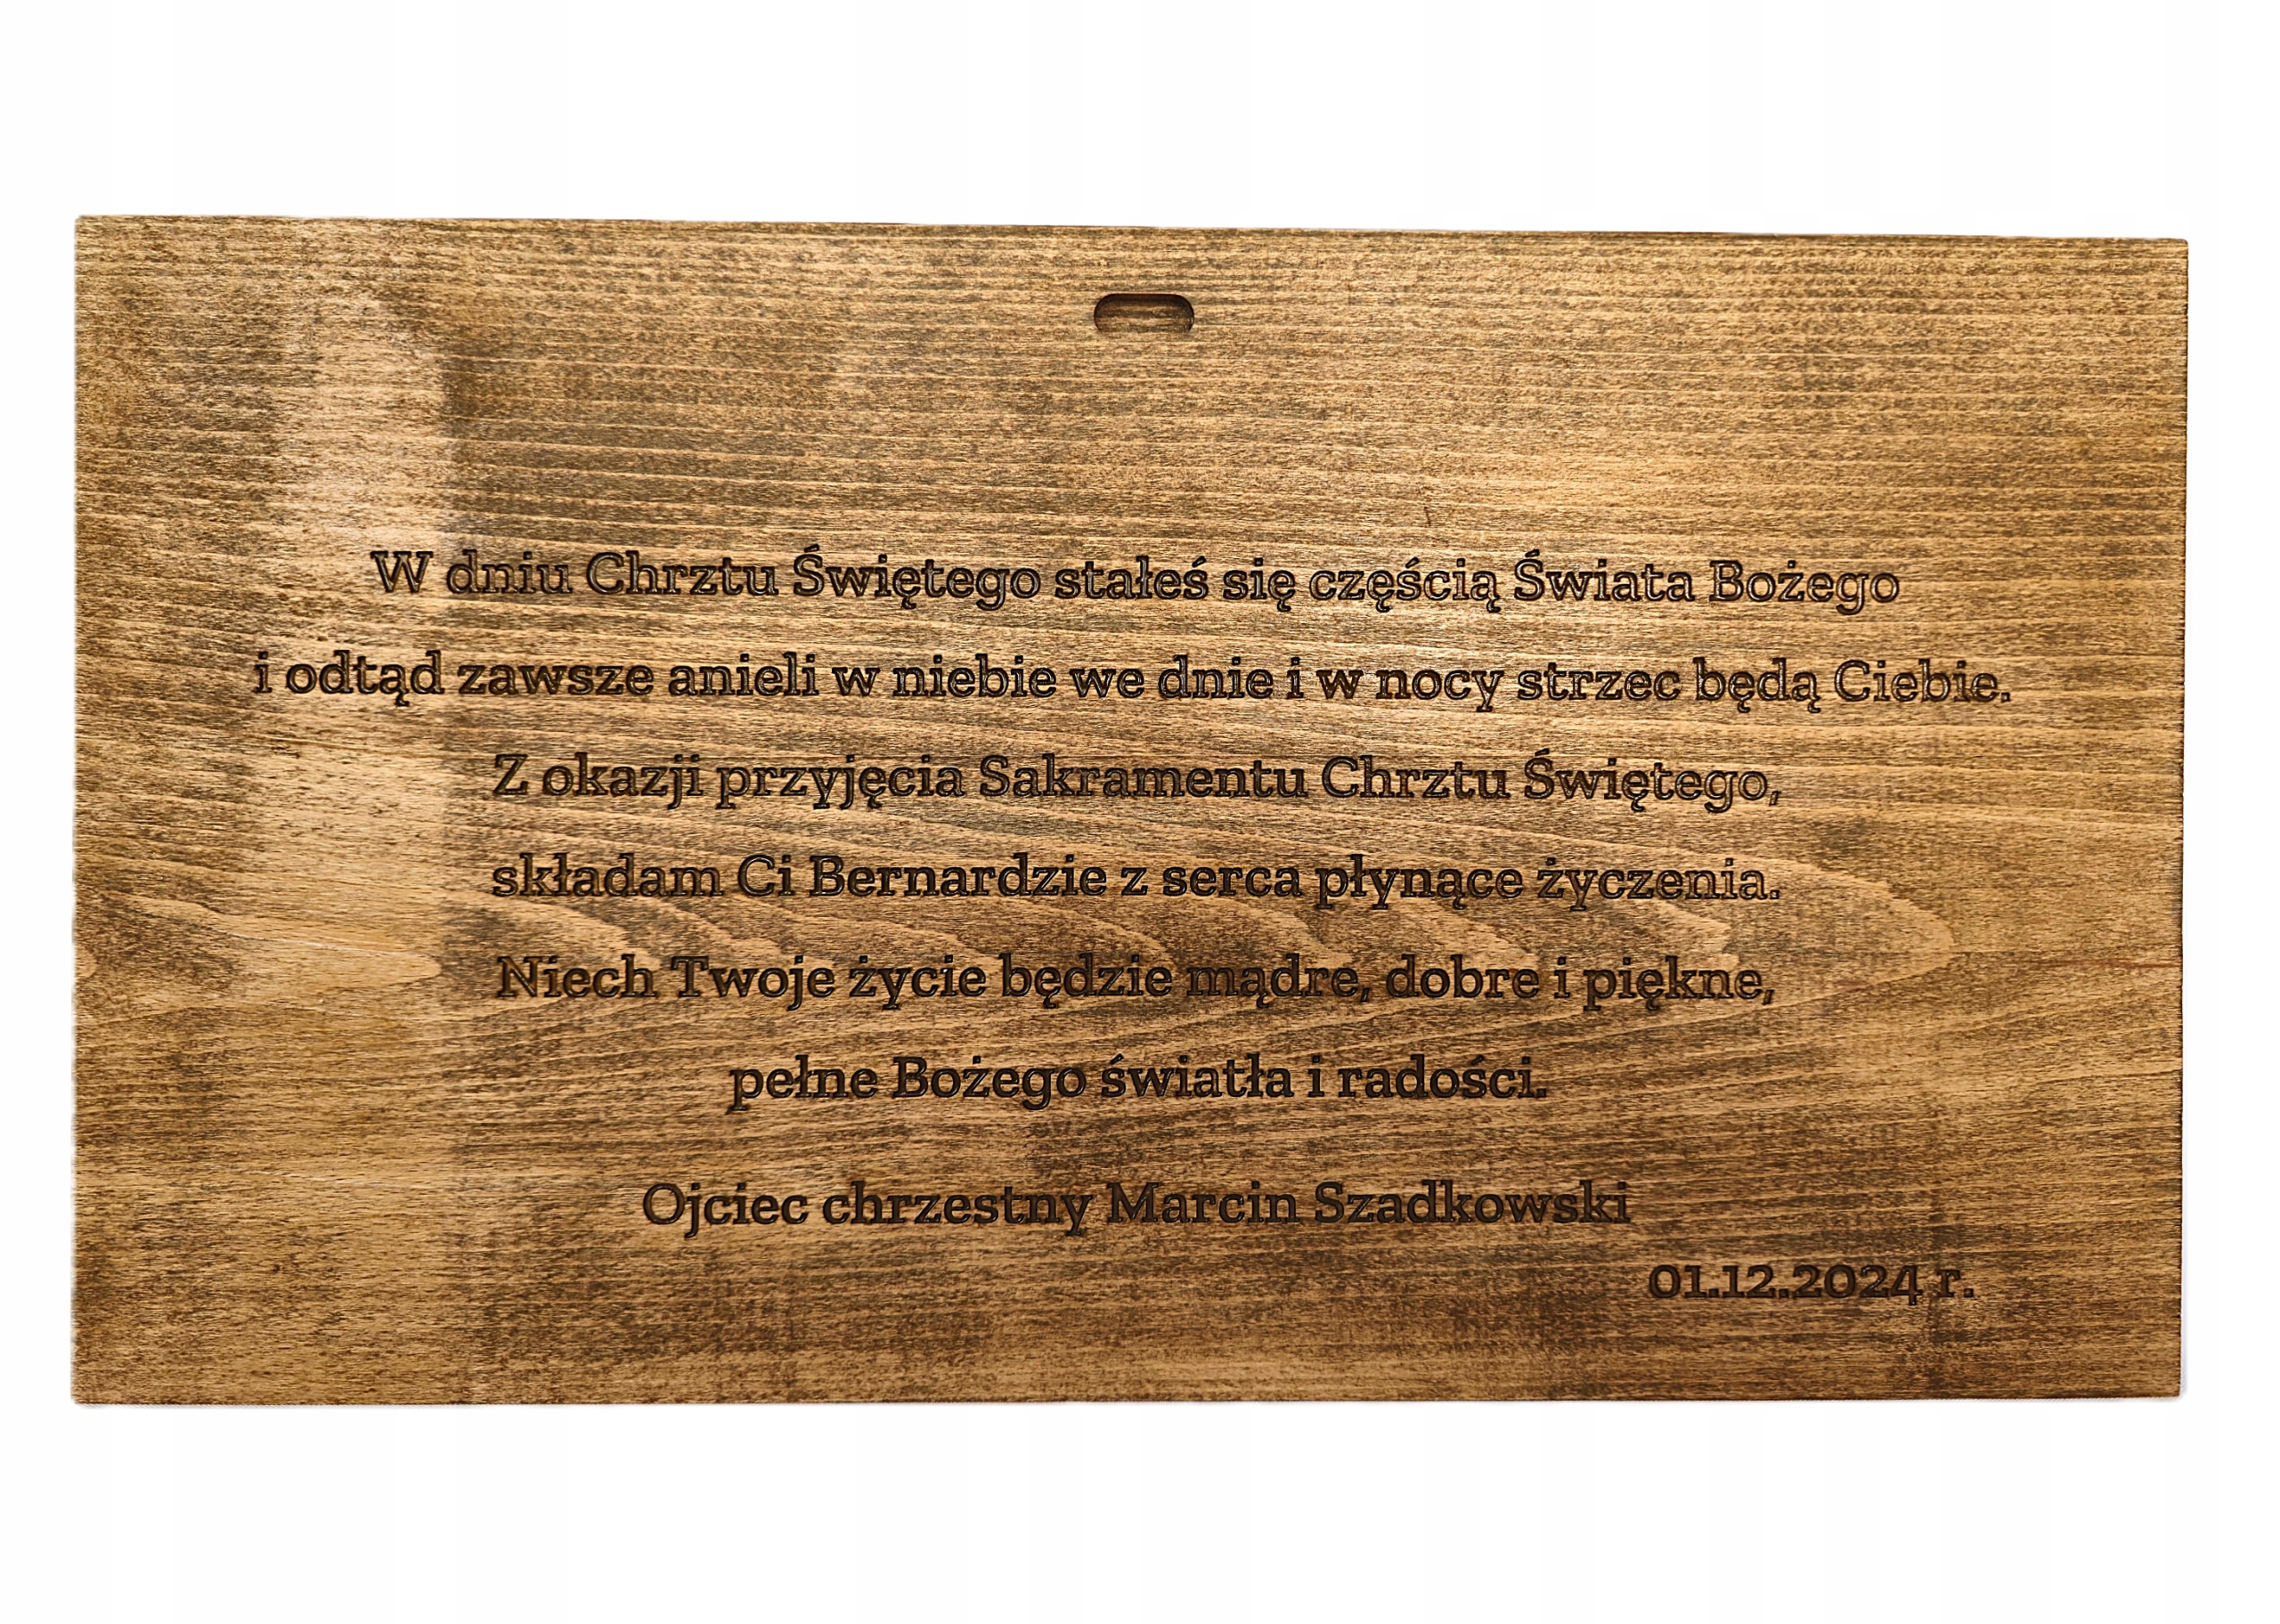 W dniu Chrztu Świętego stałeś się częścią Świata Bożego
i odtąd zawsze anieli w niebie we dnie i w nocy strzec będą Ciebie.
Z okazji przyjęcia Sakramentu Chrztu Świętego,
składam Ci Bernardzie z serca płynące życzenia.
Niech Twoje życie będzie mądre, dobre i piękne,
pełne Bożego światła i radości.
Ojciec chrzestny Marcin Szadkowski
01.12.2024 r.